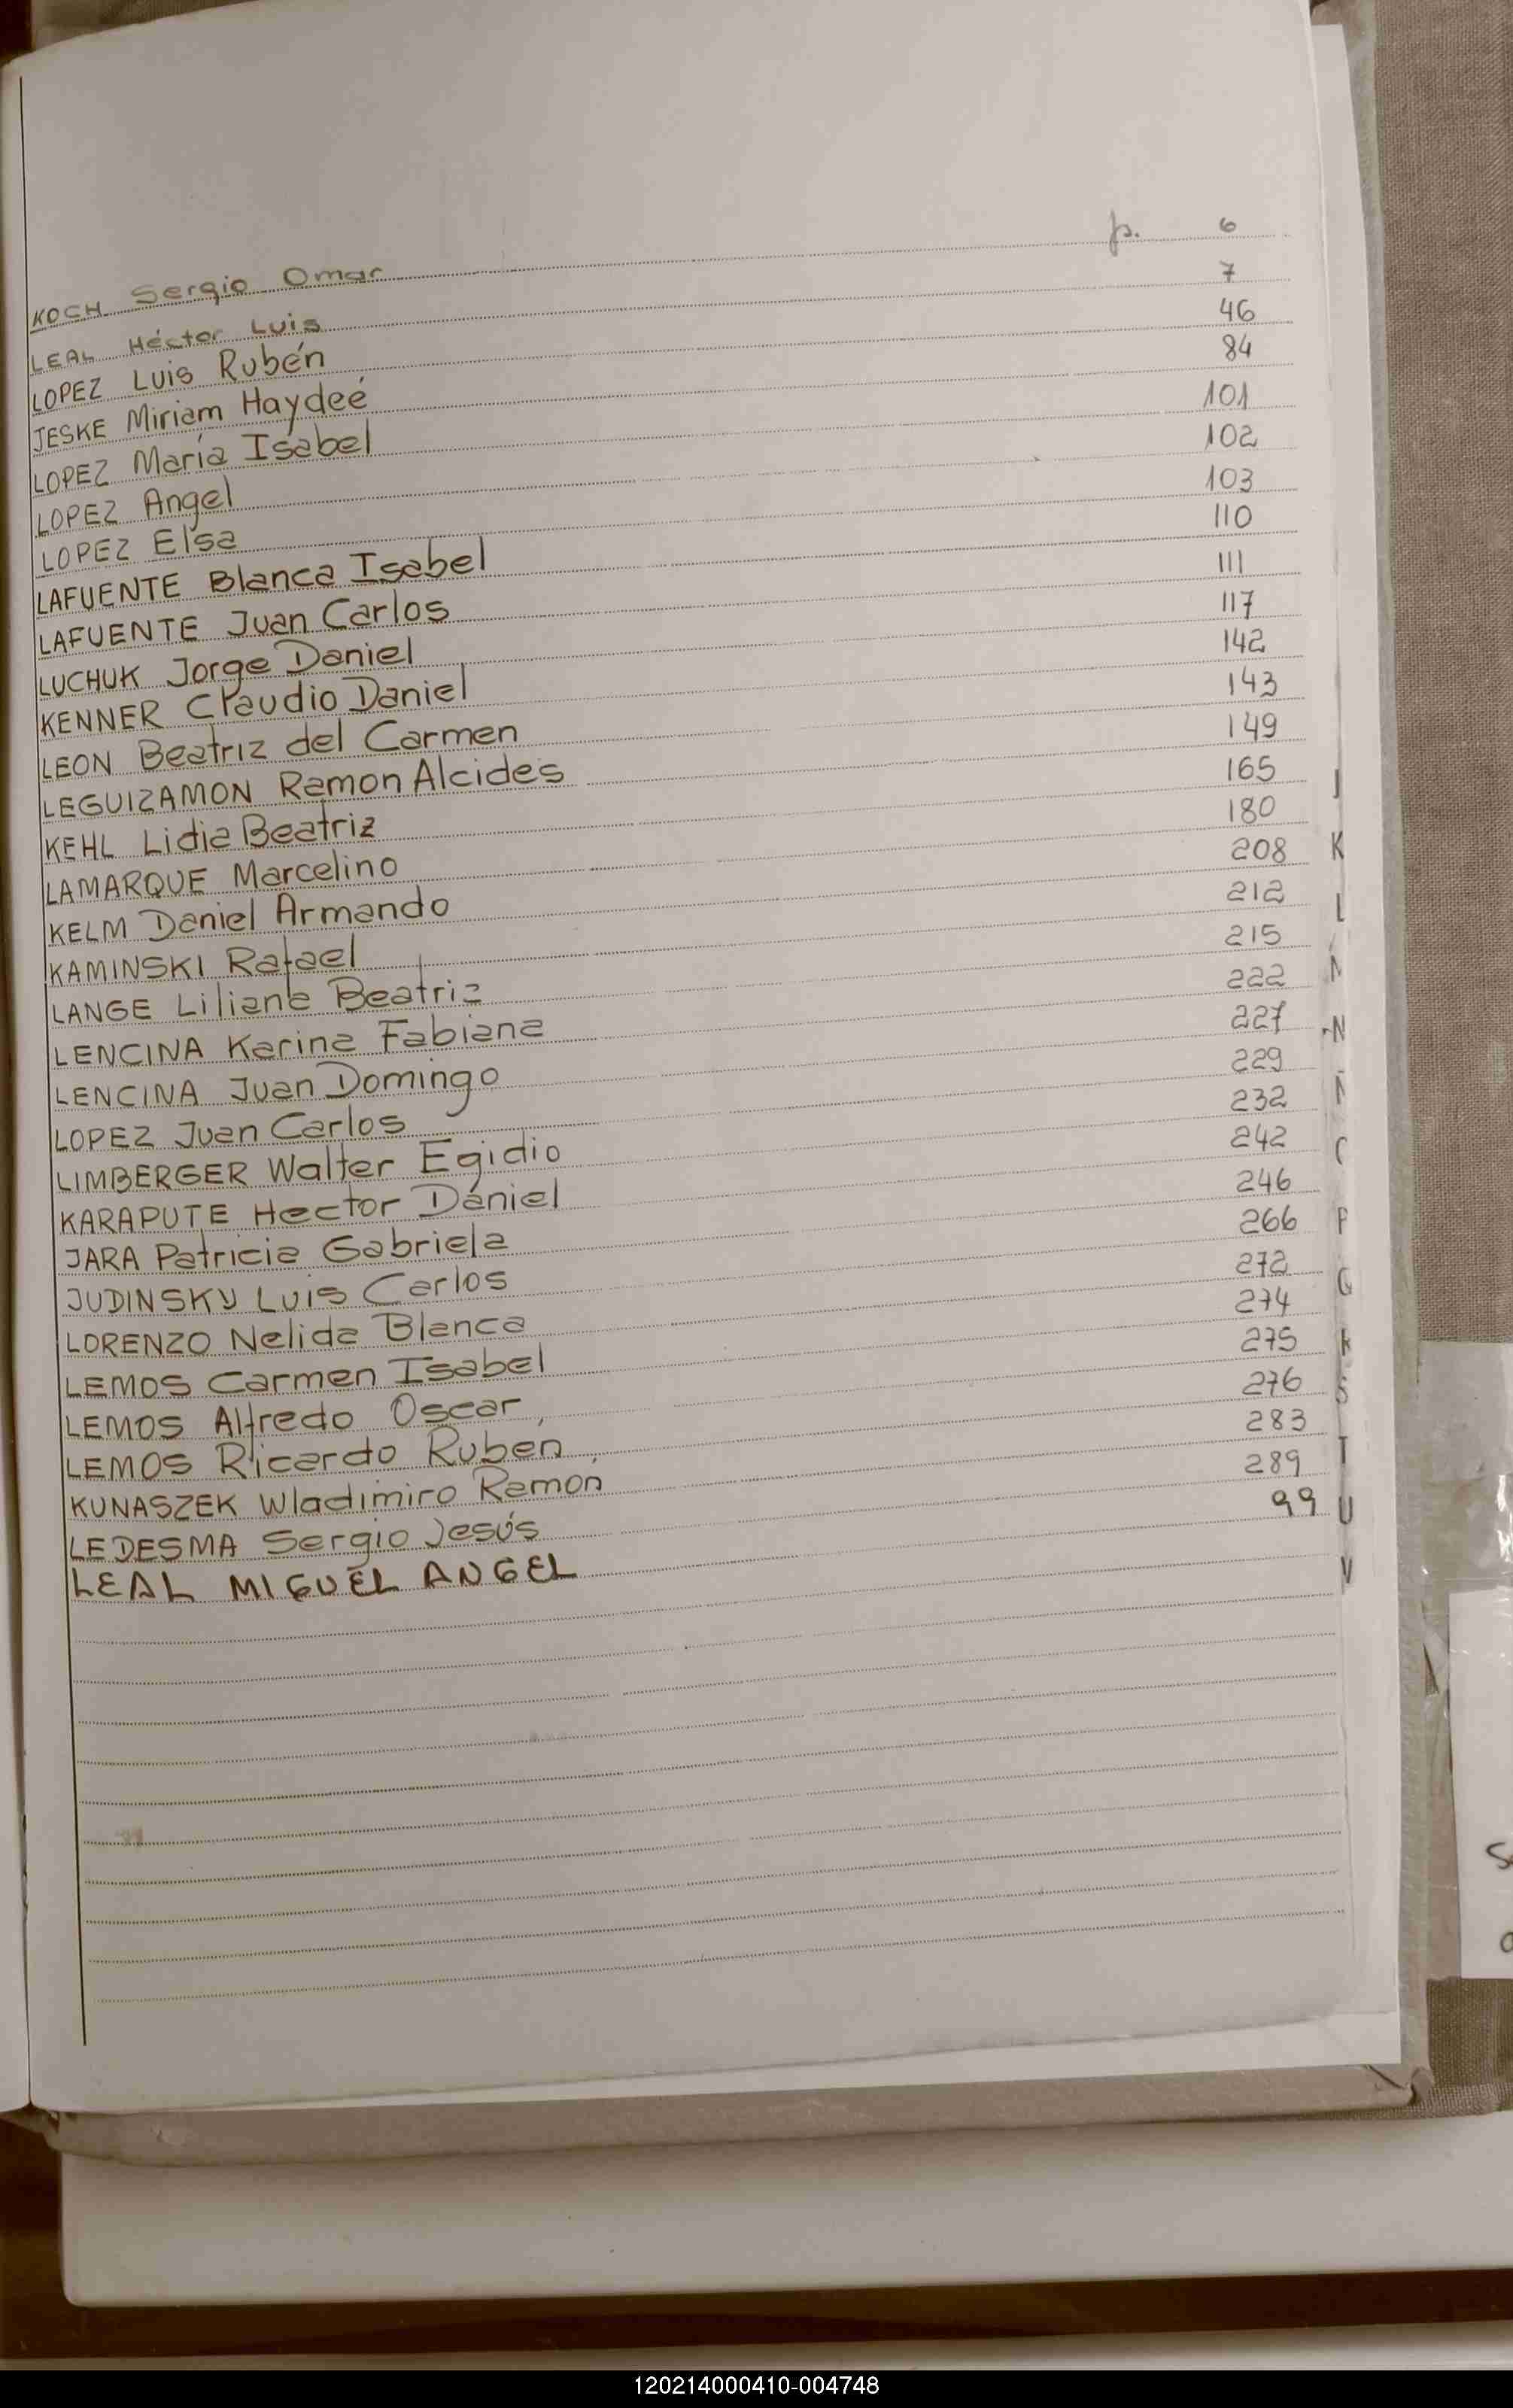 KOCH Sergio Omar p. 6
LEAL Héctor Luis 7
LOPEZ Luis Rubén 46
JESKE Miriam Haydeé 84
LOPEZ María Isabel 101
LOPEZ Angel 102
LOPEZ Elsa 103
LAFUENTE Blanca Isabel 110
LAFUENTE Juan Carlos 111
LUCHUK Jorge Daniel 117
KENNER Claudio Daniel 142
LEON Beatriz del Carmen 143
LEGUIZAMON Ramon Alcides 149
KEHL Lidia Beatriz 165
LAMARQUE Marcelino 180
KELM Daniel Armando 208
KAMINSKI Rafael 212
LANGE Liliana Beatriz 215
LENCINA Karina Fabiana 222
LENCINA Juan Domingo 227
LOPEZ Juan Carlos 229
LIMBERGER Walter Egidio 232
KARAPUTE Hector Daniel 242
JARA Patricia Gabriela 246
JUDINSKY Luis Carlos 266
LORENZO Nelida Blanca 272
LEMOS Carmen Isabel 274
LEMOS Alfredo Oscar 275
LEMOS Ricardo Ruben 276
KUNASZEK Wladimiro Ramon 283
LEDESMA Sergio Jesús 289
LEAL MIGUEL ANGEL 99
J
K
L
N
P
S
T
U
V
120214000410-004748